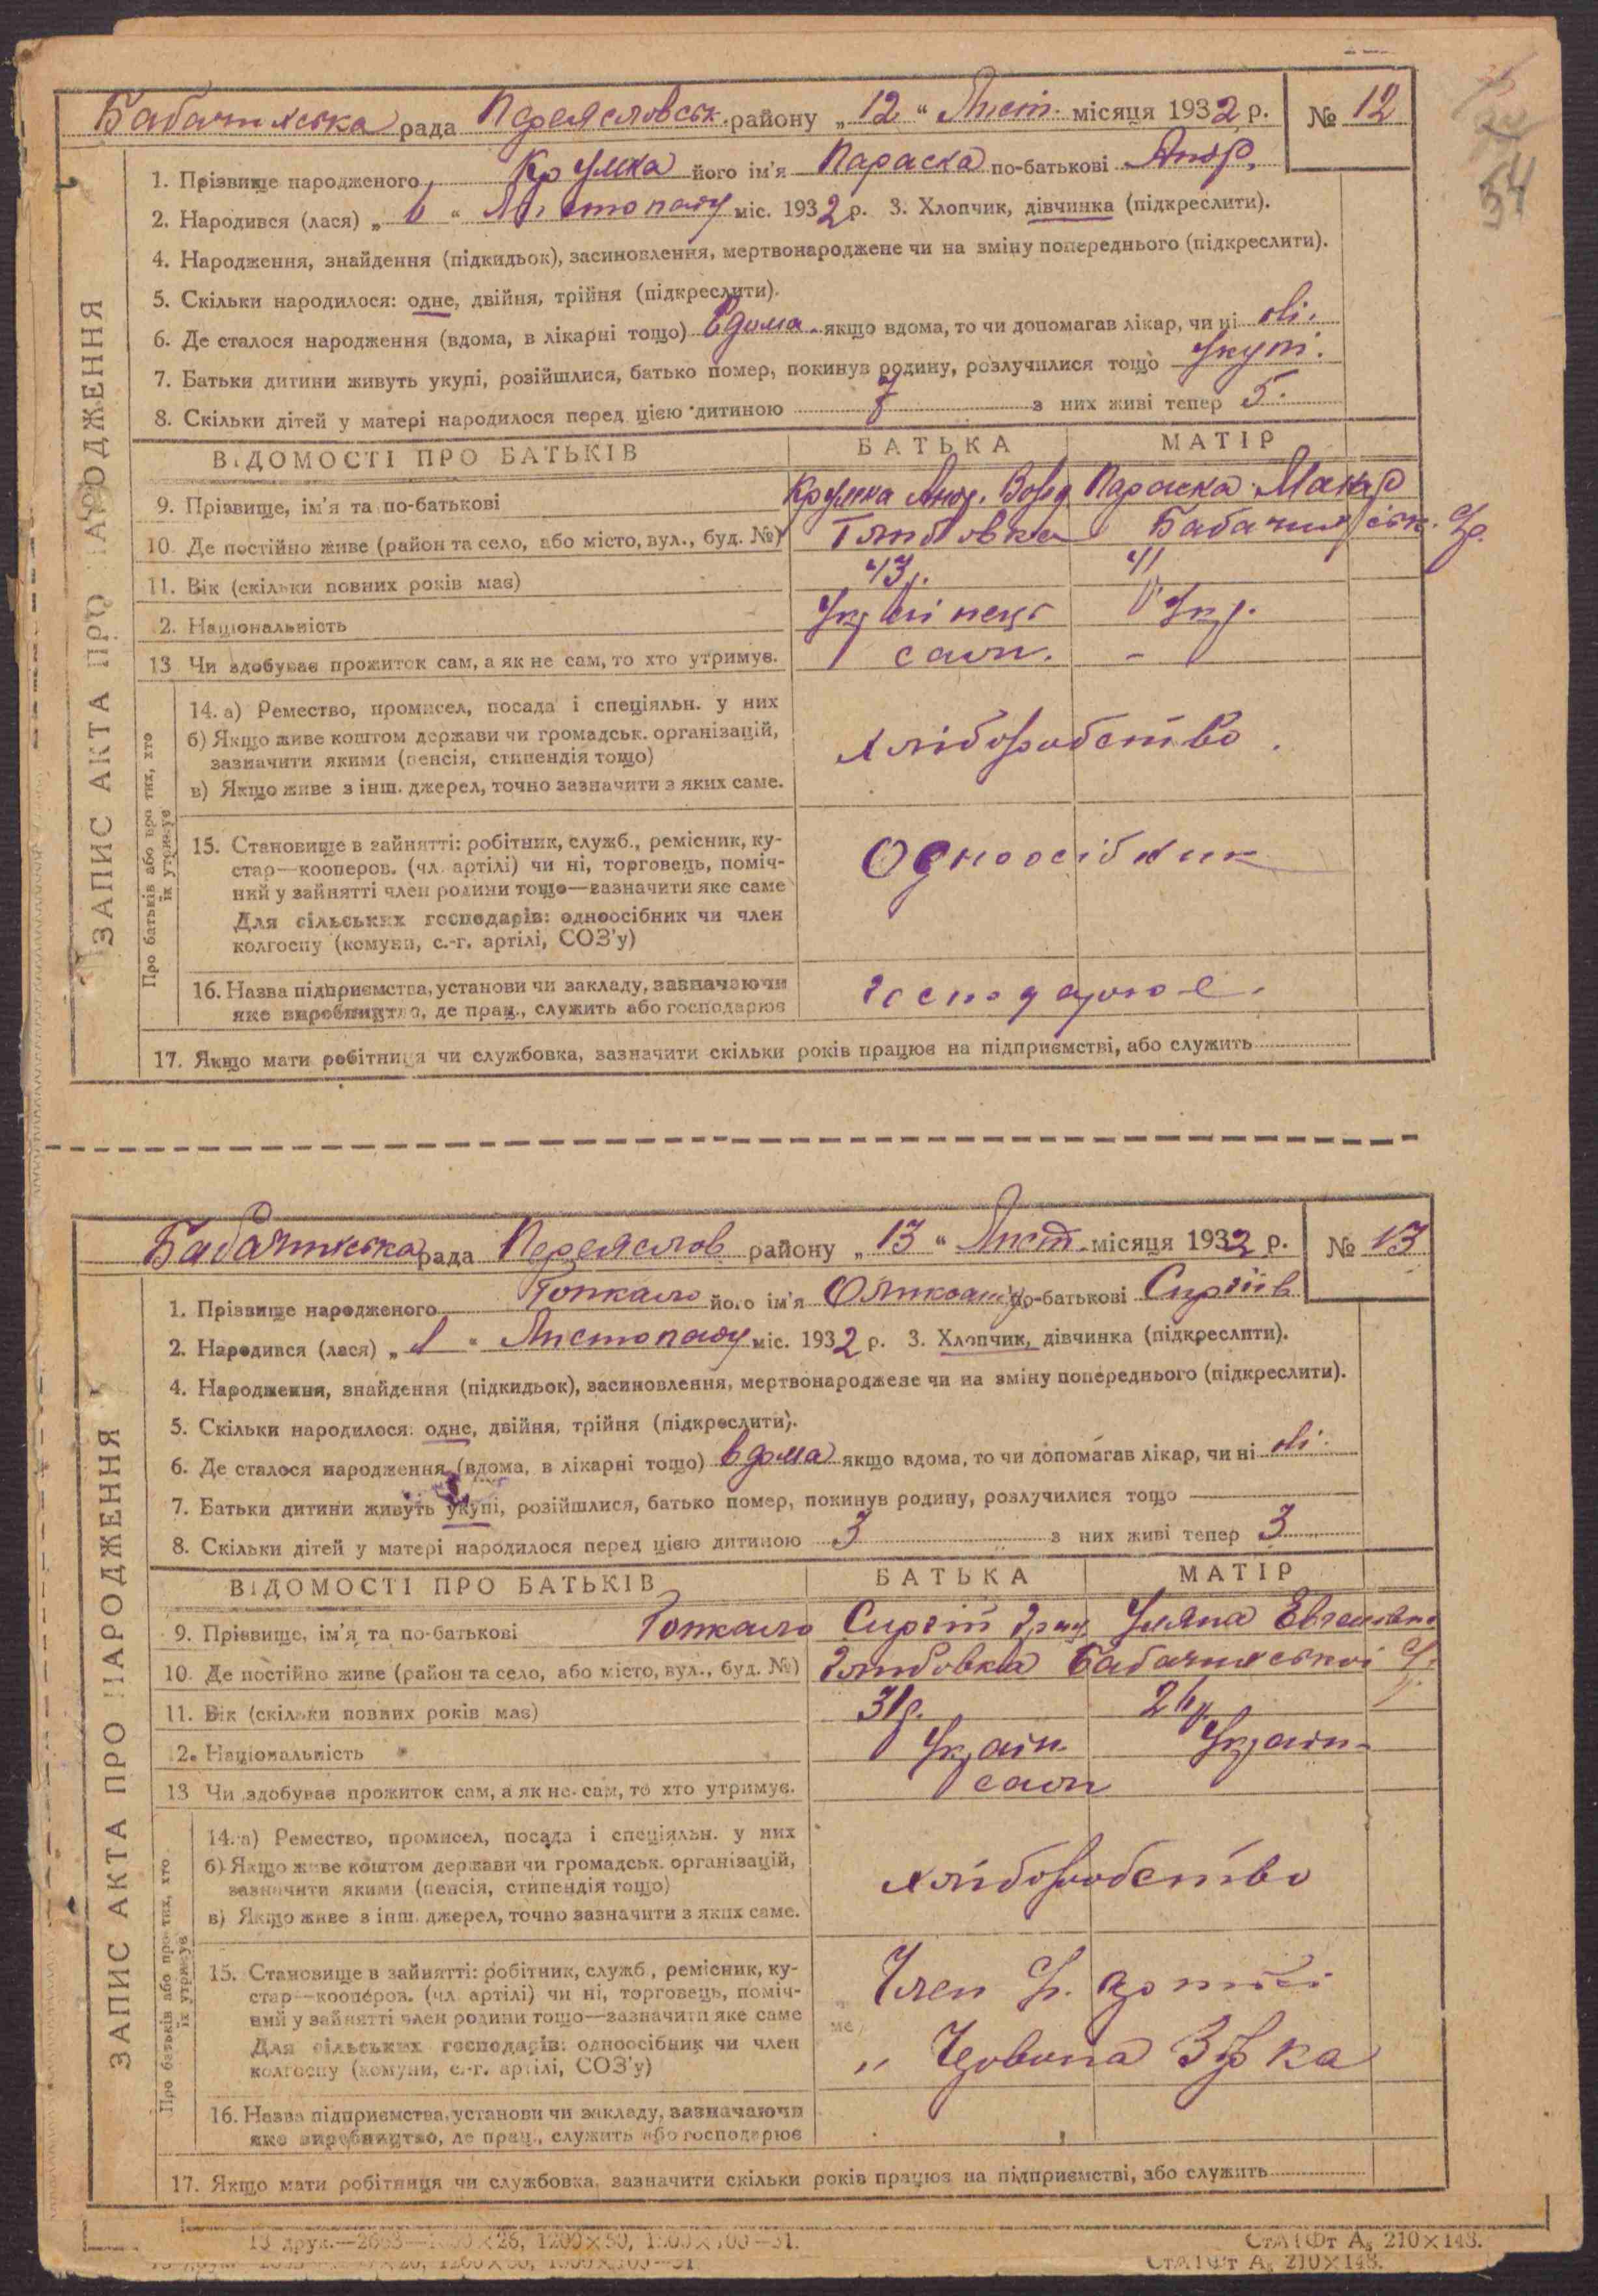 54
Бабачихська рада Переясловськ. району „12“ Лист. місяця 1932 р. № 12
1. Прізвище народженого Крушка його ім'я Параска по-батькові Андр.
2. Народився (лася) „6“ Листопаду міс. 1932 р. 3. Хлопчик, дівчинка (підкреслити).
4. Народження, знайдення (підкидьок), засиновлення, мертвонароджене чи на зміну попереднього (підкреслити).
5. Скільки народилося: одне, двійня, трійня (підкреслити).
6. Де сталося народження (вдома, в лікарні тощо) вдома якщо вдома, то чи допомагав лікар, чи ні ні.
7. Батьки дитини живуть укупі, розійшлися, батько помер, покинув родину, розлучилися тощо Укупі.
8. Скільки дітей у матері народилося перед цією дитиною з них живі тепер 5.
ВІДОМОСТІ ПРО БАТЬКІВ БАТЬКА МАТІР
9. Прізвище, ім'я та по-батькові Крушка Андр. Волод. Параска Макар
10. Де постійно живе (район та село, або місто, вул., буд. №)
11. Вік (скільки повних років має) 43 р. 41
12. Національність Українець Укр.
13 Чи здобуває прожиток сам, а як не сам, то хто утримує. сам. -
ЗАПИС АКТА ПРО НАРОДЖЕННЯ
Про батьків або про тих, хто їх утримує
14. а) Ремество, промисел, посада і спеціяльн. у них
б) Якщо живе коштом держави чи громадськ. організацій,
зазначити якими (пенсія, стипендія тощо)
в) Якщо живе з інш. джерел, точно зазначити з яких саме.
хліборобство.
15. Становище в зайнятті: робітник, служб., ремісник, ку-
стар—кооперов. (чл. артілі) чи ні, торговець, поміч-
ний у зайнятті член родини тощо—зазначити яке саме
Для сільських господарів: одноосібник чи член
колгоспу (комуни, с.-г. артілі, СОЗ'у)
Одноосібник
16. Назва підприємства, установи чи закладу, зазначаючи
яке виробництво, де прац., служить або господарює
господарює.
17. Якщо мати робітниця чи службовка, зазначити скільки років працює на підприємстві, або служить
Бабачихська рада Переяслов району „13“ Лист. місяця 1932 р. № 13
1. Прізвище народженого його ім'я по-батькові Сиргіїв
2. Народився (лася) „1“ Листопаду міс. 1932 р. 3. Хлопчик, дівчинка (підкреслити).
4. Народження, знайдення (підкидьок), засиновлення, мертвонароджене чи на зміну попереднього (підкреслити).
5. Скільки народилося: одне, двійня, трійня (підкреслити).
6. Де сталося народження (вдома, в лікарні тощо) вдома якщо вдома, то чи допомагав лікар, чи ні ні.
7. Батьки дитини живуть укупі, розійшлися, батько помер, покинув родину, розлучилися тощо
8. Скільки дітей у матері народилося перед цією дитиною 3 з них живі тепер 3
ВІДОМОСТІ ПРО БАТЬКІВ БАТЬКА МАТІР
9. Прізвище, ім'я та по-батькові Сиргій Уляна
10. Де постійно живе (район та село, або місто, вул., буд. №) Бабачихської
11. Вік (скільки повних років має) 31 р. 26 р.
12. Національність Україн. Україн.
13 Чи здобуває прожиток сам, а як не сам, то хто утримує. сам
ЗАПИС АКТА ПРО НАРОДЖЕННЯ
Про батьків або про тих, хто їх утримує
14. а) Ремество, промисел, посада і спеціяльн. у них
б) Якщо живе коштом держави чи громадськ. організацій,
зазначити якими (пенсія, стипендія тощо)
в) Якщо живе з інш. джерел, точно зазначити з яких саме.
хліборобство
15. Становище в зайнятті: робітник, служб., ремісник, ку-
стар—кооперов. (чл. артілі) чи ні, торговець, поміч-
ний у зайнятті член родини тощо—зазначити яке саме
Для сільських господарів: одноосібник чи член
колгоспу (комуни, с.-г. артілі, СОЗ'у)
Член
16. Назва підприємства, установи чи закладу, зазначаючи
яке виробництво, де прац., служить або господарює
17. Якщо мати робітниця чи службовка, зазначити скільки років працює на підприємстві, або служить